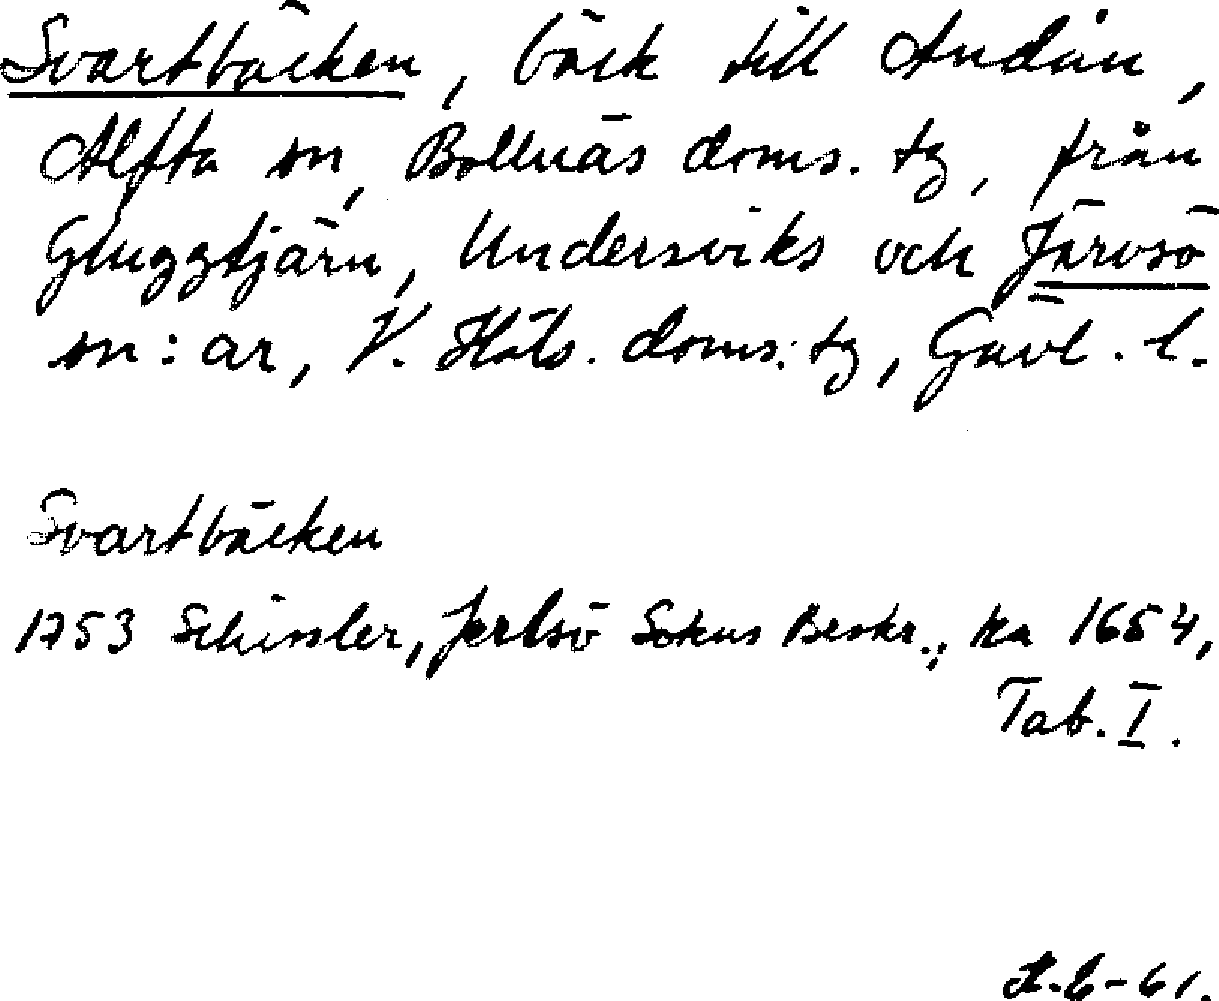 Svartbäcken, bäck till Andån,
Alfta sn, Bollnäs doms. tg, från
Gluggtjärn, Undersviks och Järvsö
sn:ar, V. Häls. doms. tg, Gävl. l.
Svartbäcken
1753 Schissler, Jerlsö Sokns Beskr., ka 1654,
Tab. I.
A.E-61.